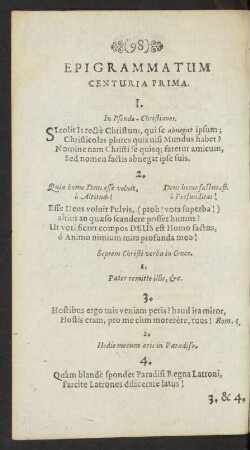 (98)
EPIGRAMMATUM
CENTURIA PRIMA.
I.
In Pseudo-Christianos.
SIcolit Is rectè Christum, qui se abnegat ipsum;
Christicolis plures quis nisi Mundus habet?
Nomine nam Christi se quisq; fatetur amicum,
Sed nomen factis abnegat ipse suis.
2.
Quia homo Deus esse voluit, Deus homo factus est.
ô Altitudo! ô Profunditas!
Esse Deus voluit Pulvis, (proh! vota superba!)
altius an quæso scandere posset humus?
Ut voti fieret compos DEUS est Homo factus,
ô Animo nimium mira profunda meo!
Septem Christi verba in Cruce.
1.
Pater remitte illis, &c.
3.
Hostibus ergo tuis veniam petis? haud ita miror,
Hostis eram, pro me cùm morerére, tuus! Rom. 5.
2.
Hodie mecum eris in Paradiso.
4.
Quàm blandè spondet Paradisi Regna Latroni,
Parcite Latrones dilacerate latus!
3. & 4.